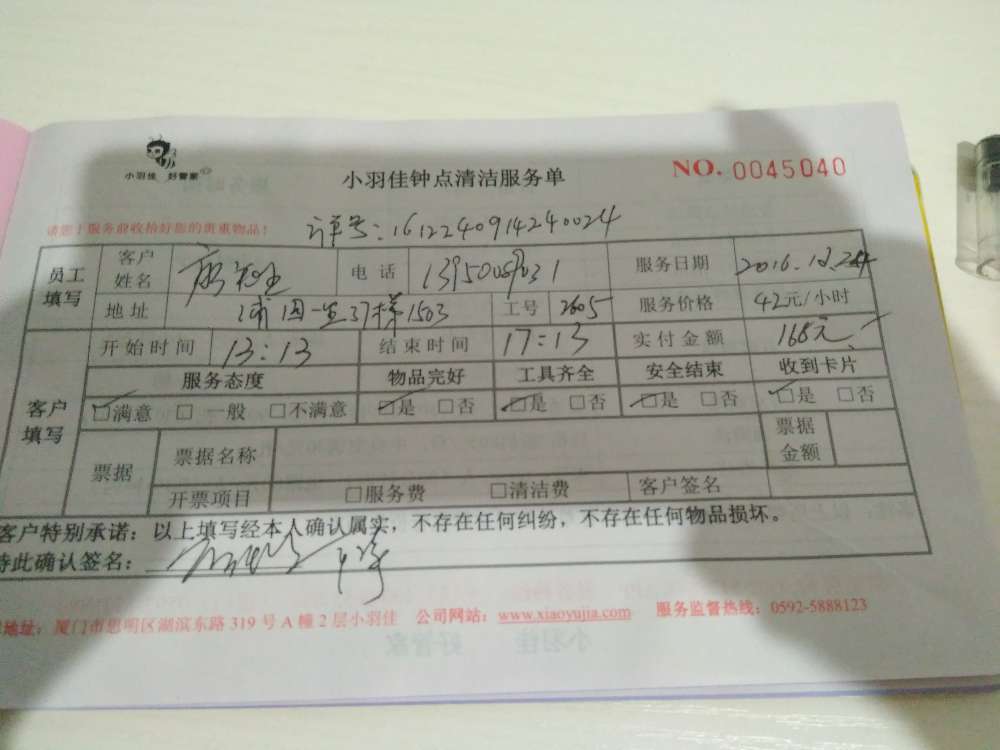 小羽佳 好管家
小羽佳钟点清洁服务单
NO. 0045040
请您于服务前收拾好您的贵重物品!
订单号:1612240914240024
员工填写 客户姓名 电话 服务日期 2016.12.24
地址 1503 工号 2605 服务价格 42元/小时
客户填写 开始时间 13:13 结束时间 17:13 实付金额 168元
服务态度 物品完好 工具齐全 安全结束 收到卡片
☑满意 □一般 □不满意 ☑是 □否 ☑是 □否 ☑是 □否 ☑是 □否
票据 票据名称 票据金额
开票项目 □服务费 □清洁费 客户签名
客户特别承诺:以上填写经本人确认属实,不存在任何纠纷,不存在任何物品损坏。
特此确认签名:
地址:厦门市思明区湖滨东路319号A幢2层小羽佳 公司网站:www.xiaoyujia.com 服务监督热线:0592-5888123